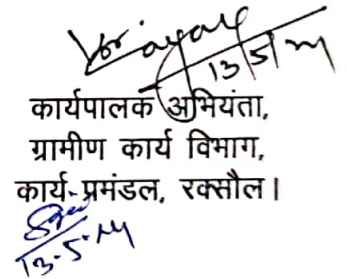 13/5/14
कार्यपालक अभियंता,
ग्रामीण कार्य विभाग,
कार्य-प्रमंडल, रक्सौल।
13-5-14